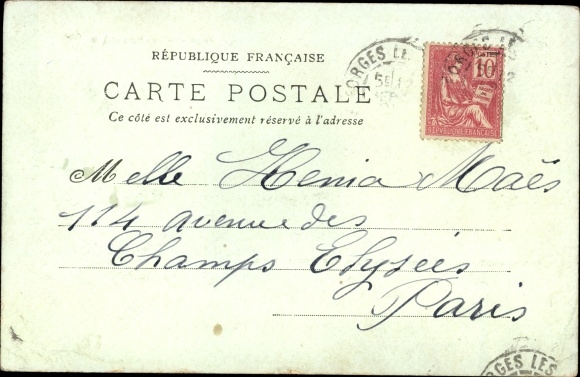 RÉPUBLIQUE FRANÇAISE
CARTE POSTALE
Ce côté est exclusivement réservé à l'adresse
ORGES LES
10
REPUBLIQUE FRANÇAISE
Melle Henia Maës
114 avenue des
Champs Elysées
Paris
ORGES LES